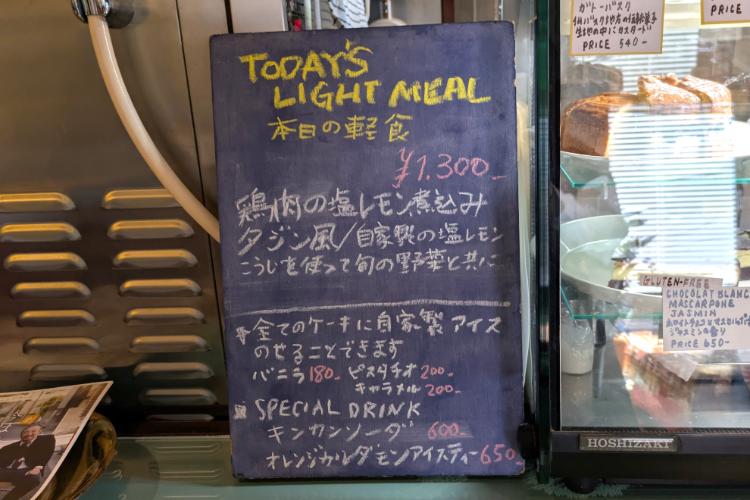 TODAY'S
LIGHT MEAL
本日の軽食
¥1.300-
鶏肉の塩レモン煮込み
タジン風/自家製の塩レモン
こうじを使って旬の野菜と共に
全てのケーキに自家製アイス
のせることできます
バニラ180- ピスタチオ200-
キャラメル200-
SPECIAL DRINK
キンカンソーダ 600-
オレンジカルダモンアイスティー650
ガトーバスク
生地の中にカスタード
PRICE 540-
PRICE
GLUTEN-FREE
CHOCOLAT BLANC
MASCARPONE
JASMIN
ホワイトチョコとマスカルポーネ
ジャスミンの香り
PRICE 650-
HOSHIZAKI